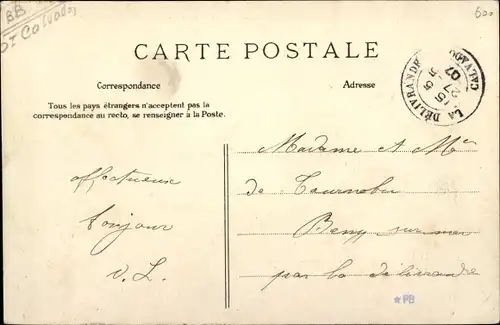 BB
Calvados
600
CARTE POSTALE
Correspondance
Adresse
Tous les pays étrangers n'acceptent pas la
correspondance au recto, se renseigner à la Poste.
LA DÉLIVRANDE CALVADOS
27 5 07
affectueux
bonjour
V. L.
Madame et Mr
de Tournebu
Beny sur mer
par la délivrande
*PB